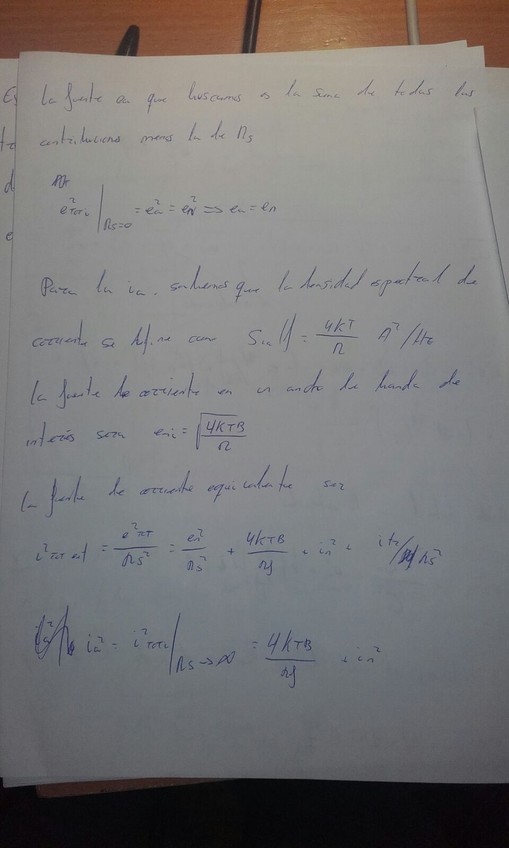 La fuente ea que buscamos es la suma de todas las
contribuciones menos la de Rs
e²TOTi | Rs=0 = ea² = en² => ea = en
Para la ia. sabemos que la densidad espectral de
corriente se define como Si(f) = 4KT/R A²/Hz
la fuente de corriente en un ancho de banda de
interés sera eni = √(4KTB/R)
la fuente de corriente equivalente sera
i²TOT = e²TOT/Rs² = en²/Rs² + 4KTB/Rs + in² +
ia² = i²TOTi | Rs->∞ = 4KTB/Rf + in²